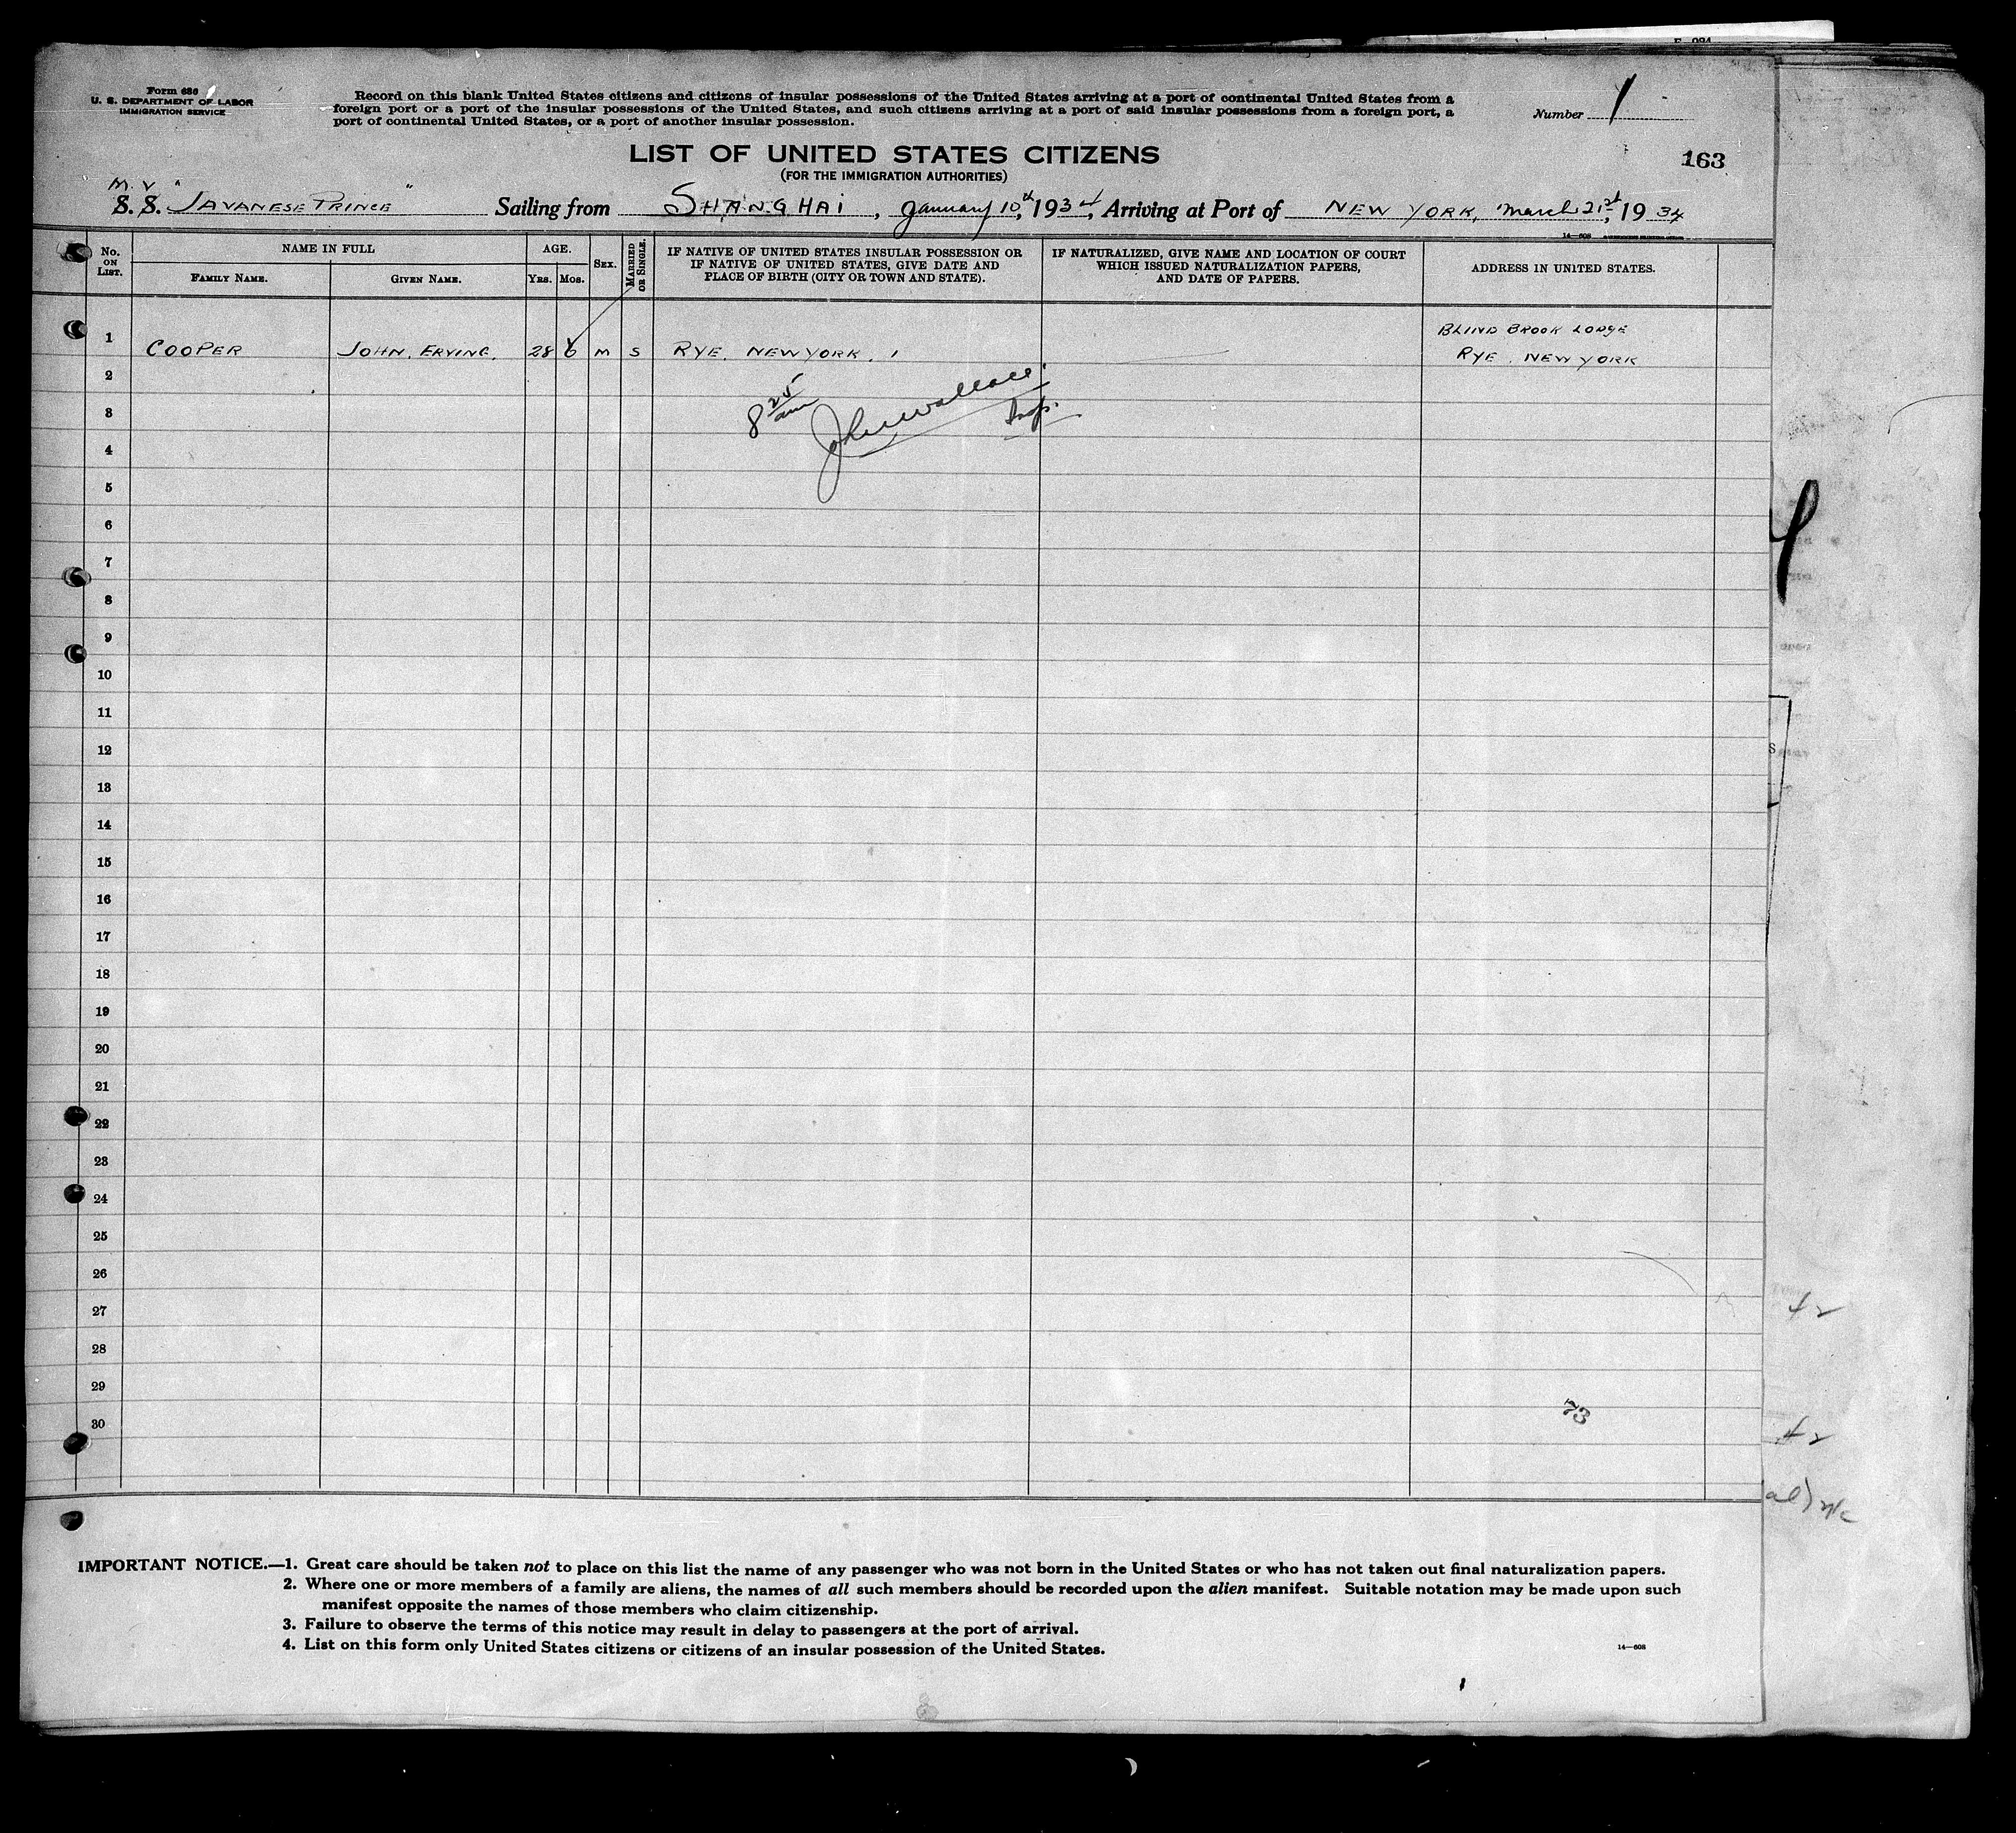 Form 630
U. S. DEPARTMENT OF LABOR
IMMIGRATION SERVICE
Record on this blank United States citizens and citizens of insular possessions of the United States arriving at a port of continental United States from a
foreign port or a port of the insular possessions of the United States, and such citizens arriving at a port of said insular possessions from a foreign port, a
port of continental United States, or a port of another insular possession.
Number 1
LIST OF UNITED STATES CITIZENS
(FOR THE IMMIGRATION AUTHORITIES)
163
M. V
S. S. "JAVANESE PRINCE" Sailing from SHANGHAI, January 10th, 1934, Arriving at Port of NEW YORK, March 21st, 1934
14—608
No. ON LIST.
NAME IN FULL
FAMILY NAME.
GIVEN NAME.
AGE.
YRS.
MOS.
SEX.
MARRIED OR SINGLE.
IF NATIVE OF UNITED STATES INSULAR POSSESSION OR
IF NATIVE OF UNITED STATES, GIVE DATE AND
PLACE OF BIRTH (CITY OR TOWN AND STATE).
IF NATURALIZED, GIVE NAME AND LOCATION OF COURT
WHICH ISSUED NATURALIZATION PAPERS,
AND DATE OF PAPERS.
ADDRESS IN UNITED STATES.
BLIND BROOK LODGE
1 COOPER JOHN, ERVING. 28 6 M S RYE, NEW YORK. RYE, NEW YORK
2
8 25 am John Wallace
3
Insp.
4
5
6
7
8
9
10
11
12
13
14
15
16
17
18
19
20
21
22
23
24
25
26
27
28
29
30
73
IMPORTANT NOTICE.—1. Great care should be taken not to place on this list the name of any passenger who was not born in the United States or who has not taken out final naturalization papers.
2. Where one or more members of a family are aliens, the names of all such members should be recorded upon the alien manifest. Suitable notation may be made upon such
manifest opposite the names of those members who claim citizenship.
3. Failure to observe the terms of this notice may result in delay to passengers at the port of arrival.
4. List on this form only United States citizens or citizens of an insular possession of the United States.
14—608